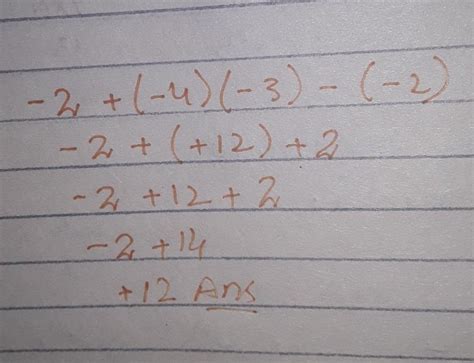 -2 + (-4)(-3) - (-2)
-2 + (+12) + 2
-2 + 12 + 2
-2 + 14
+12 Ans